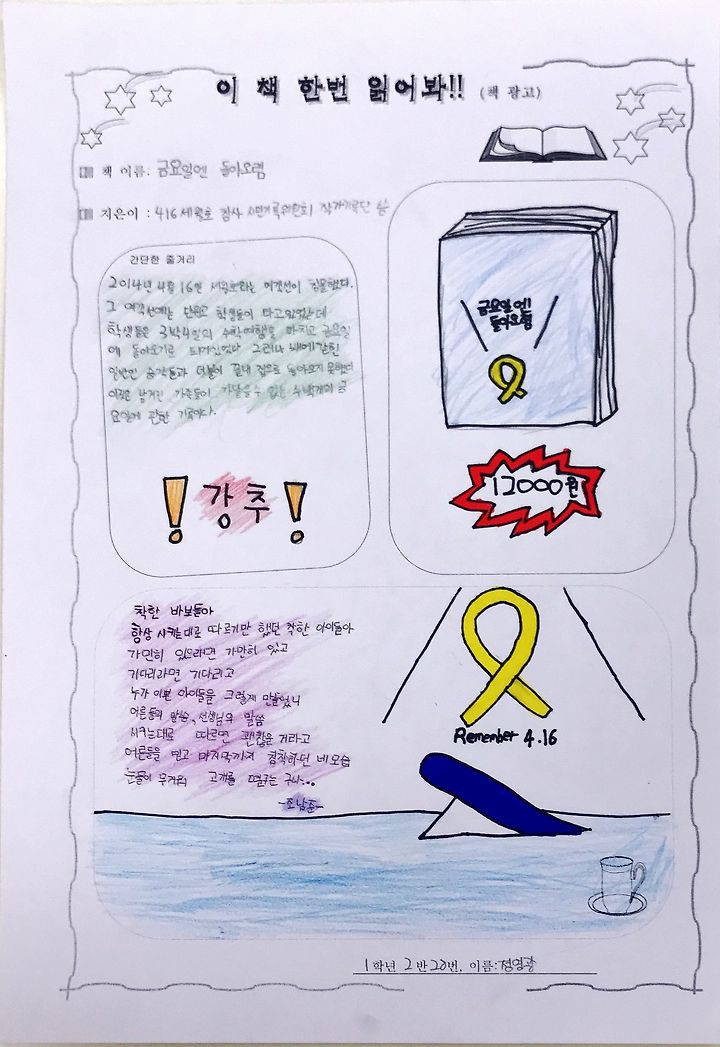 이 책 한번 읽어봐!! (책 광고)
책 이름: 금요일엔 돌아오렴
지은이 : 416 세월호 참사 시민기록위원회 작가기록단
간단한 줄거리
2014년 4월 16일 세월호라는 여객선이 침몰했다.
그 여객선에는 단원고 학생들이 타고있었는데
학생들은 3박4일의 수학여행을 마치고 금요일
에 돌아오기로 되어있었다 그러나 배에갇힌
일반인 승객들과 더불어 끝내 집으로 돌아오지 못했다
이것은 남겨진 가족들이 수 없는 수백개의 금
요일에 관한 기록이다.
! 강추 !
금요일엔
돌아오렴
12000원
착한 바보들아
항상 시키는대로 따르기만 했던 착한 아이들아
가만히 있으라면 가만히 있고
기다리라면 기다리고
누가 이런 아이들을 그렇게 만들었니
어른들의 말씀, 선생님의 말씀
시키는대로 따르면 괜찮을거라고
어른들을 믿고 마지막까지 침착하던 네모습
눈물이 무거워 고개를 떨구는 구나...
-조남준-
Remember 4.16
1학년 2반 20번. 이름:정영광